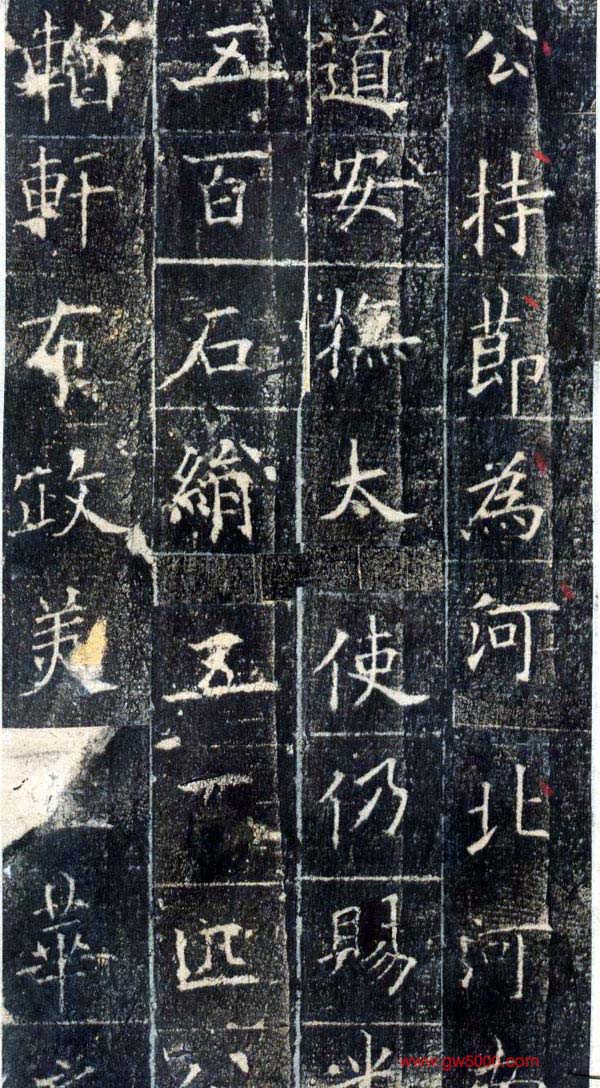 公持節為河北河
道安撫太使仍賜米
五百石絹五匹以
輶軒布政美華
www.gw5000.com